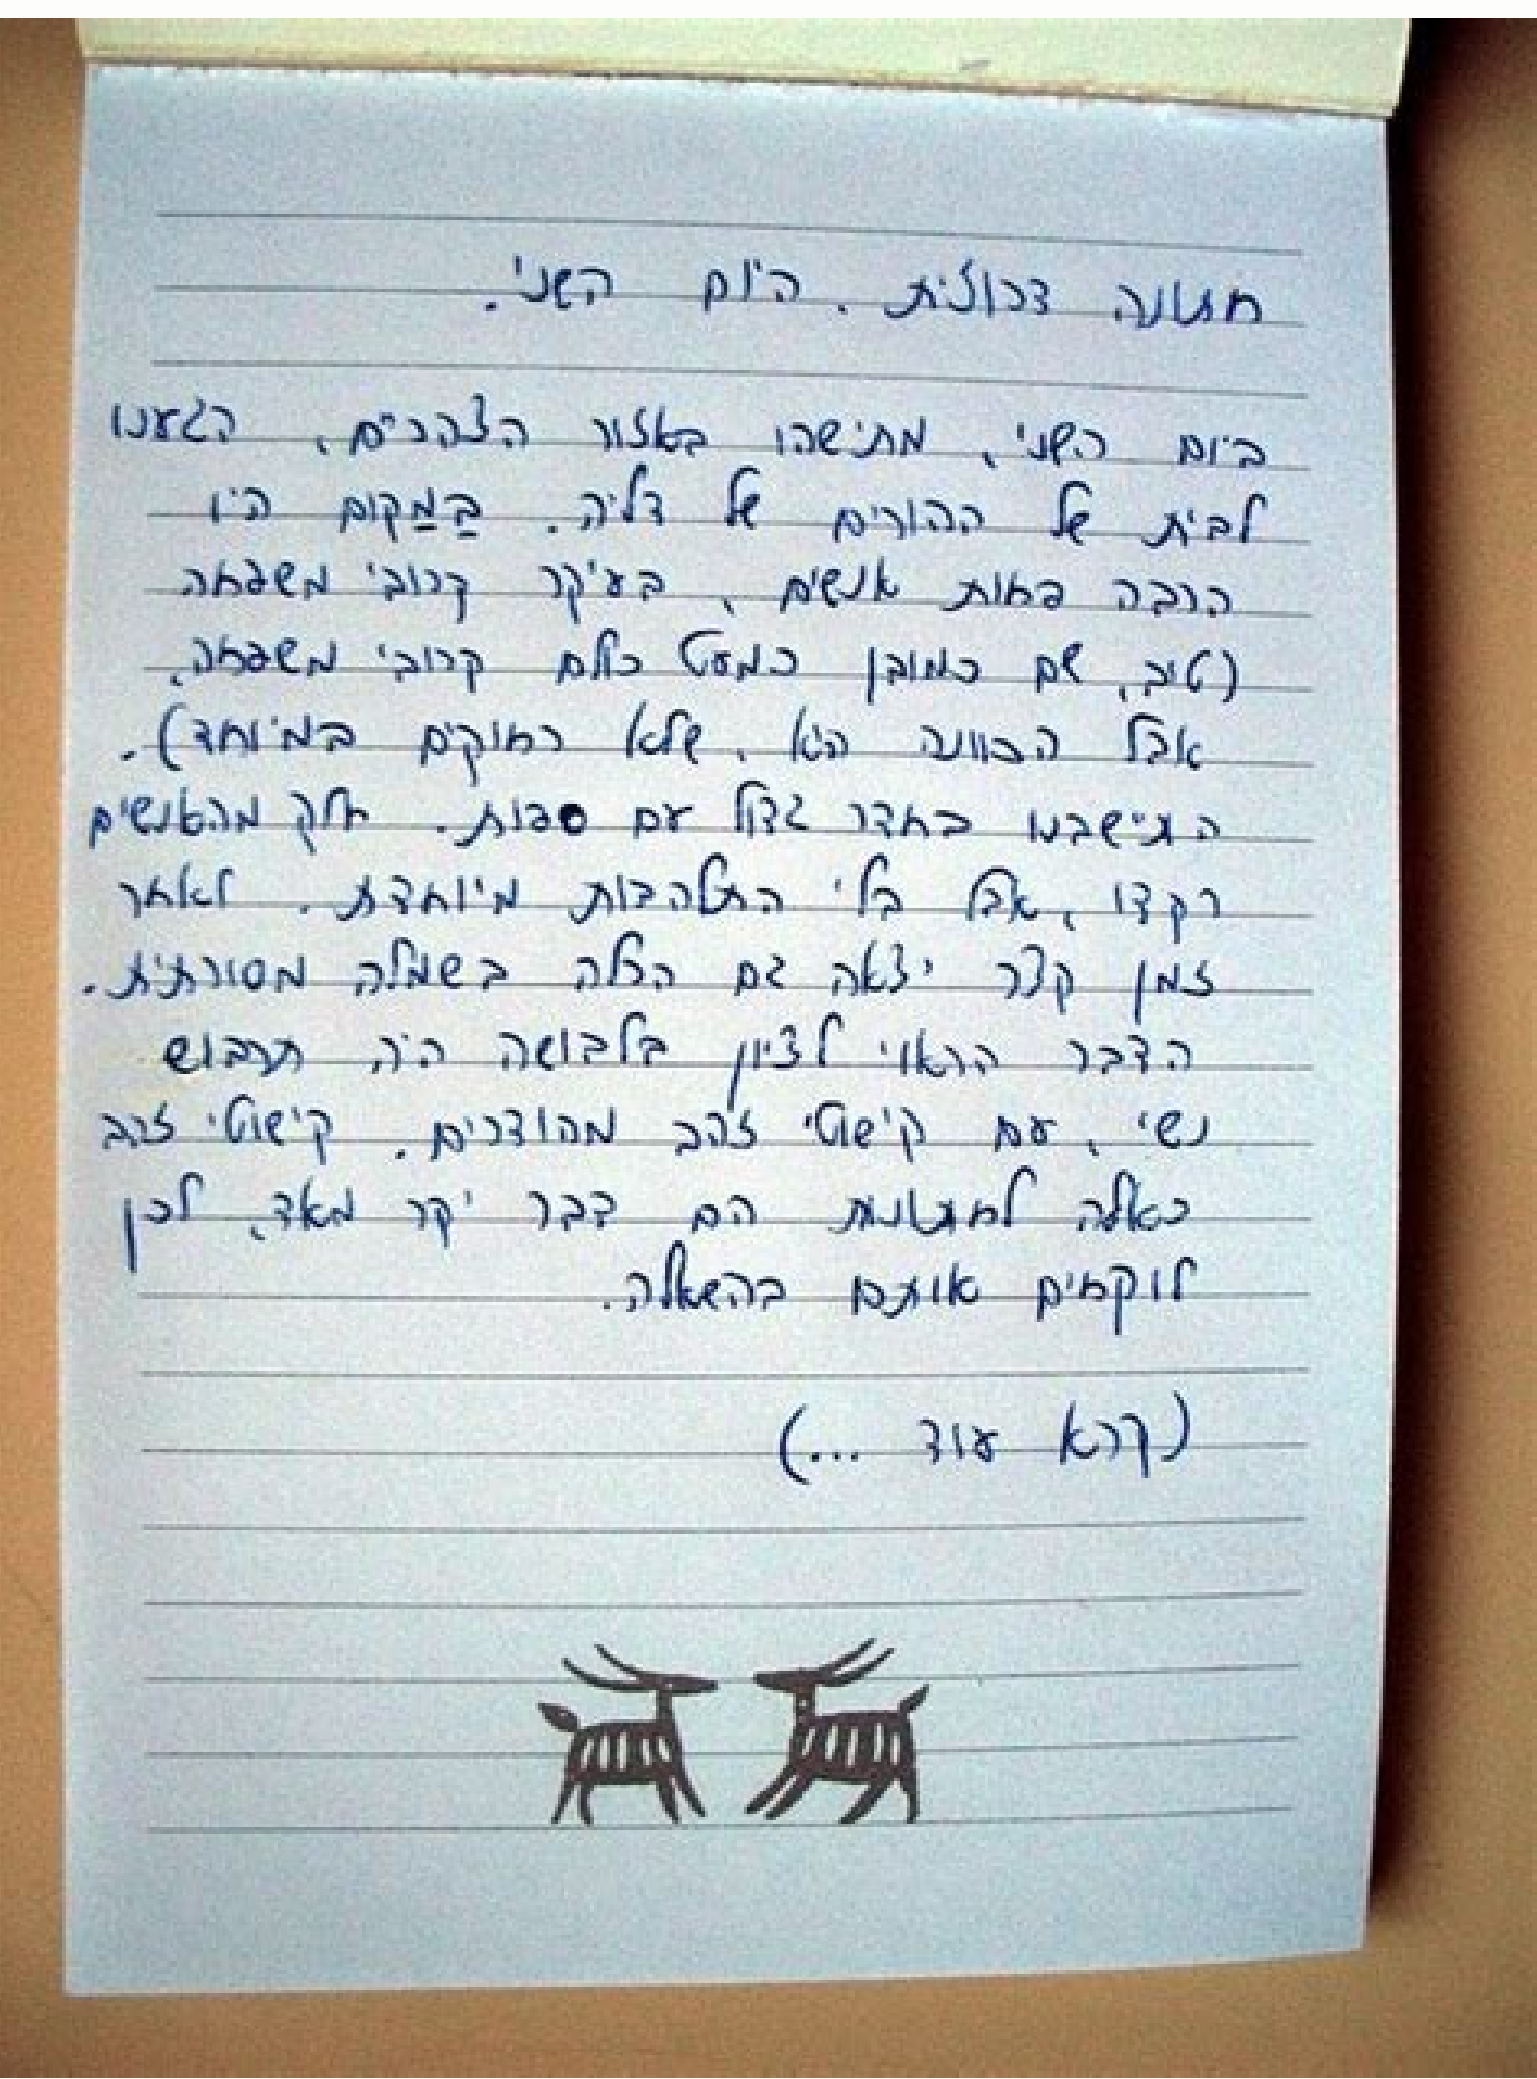 חתונה דרוזית. היום השני.
ביום השני, מתישהו באזור הצהריים, הגענו
לבית של ההורים של דליה. בַּמַקום היו
הרבה פחות אנשים, בעיקר קרובי משפחה
(טוב, שם כמובן כמעט כולם קרובי משפחה,
אבל הכוונה היא, שלא רחוקים במיוחד).
התיישבנו בחדר גדול עם ספות. חלק מהאנשים
רקדו, אבל בלי התלהבות מיוחדת. לאחר
זמן קצר יצאה גם הכלה בשמלה מסורתית.
הדבר הראוי לציון בלבושה היה תרבוש
נשי, עם קישוטי זהב מהודרים. קישוטי זהב
כאלה לחתונות הם דבר יקר מאד, לכן
לוקחים אותם בהשאלה.
(קרא עוד ...)